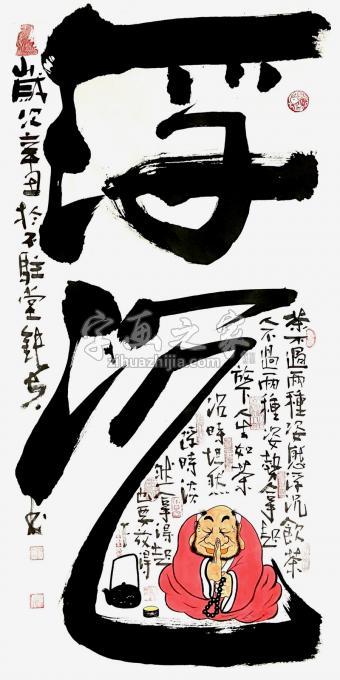 浮沉
茶不過兩種姿態浮沉飲茶
人不過兩種姿勢拿起
放下人生如茶
沉時坦然
浮時淡
然拿得起
也要放得
下
歲次辛丑於不駐堂
字画之家
zihuazhijia.com